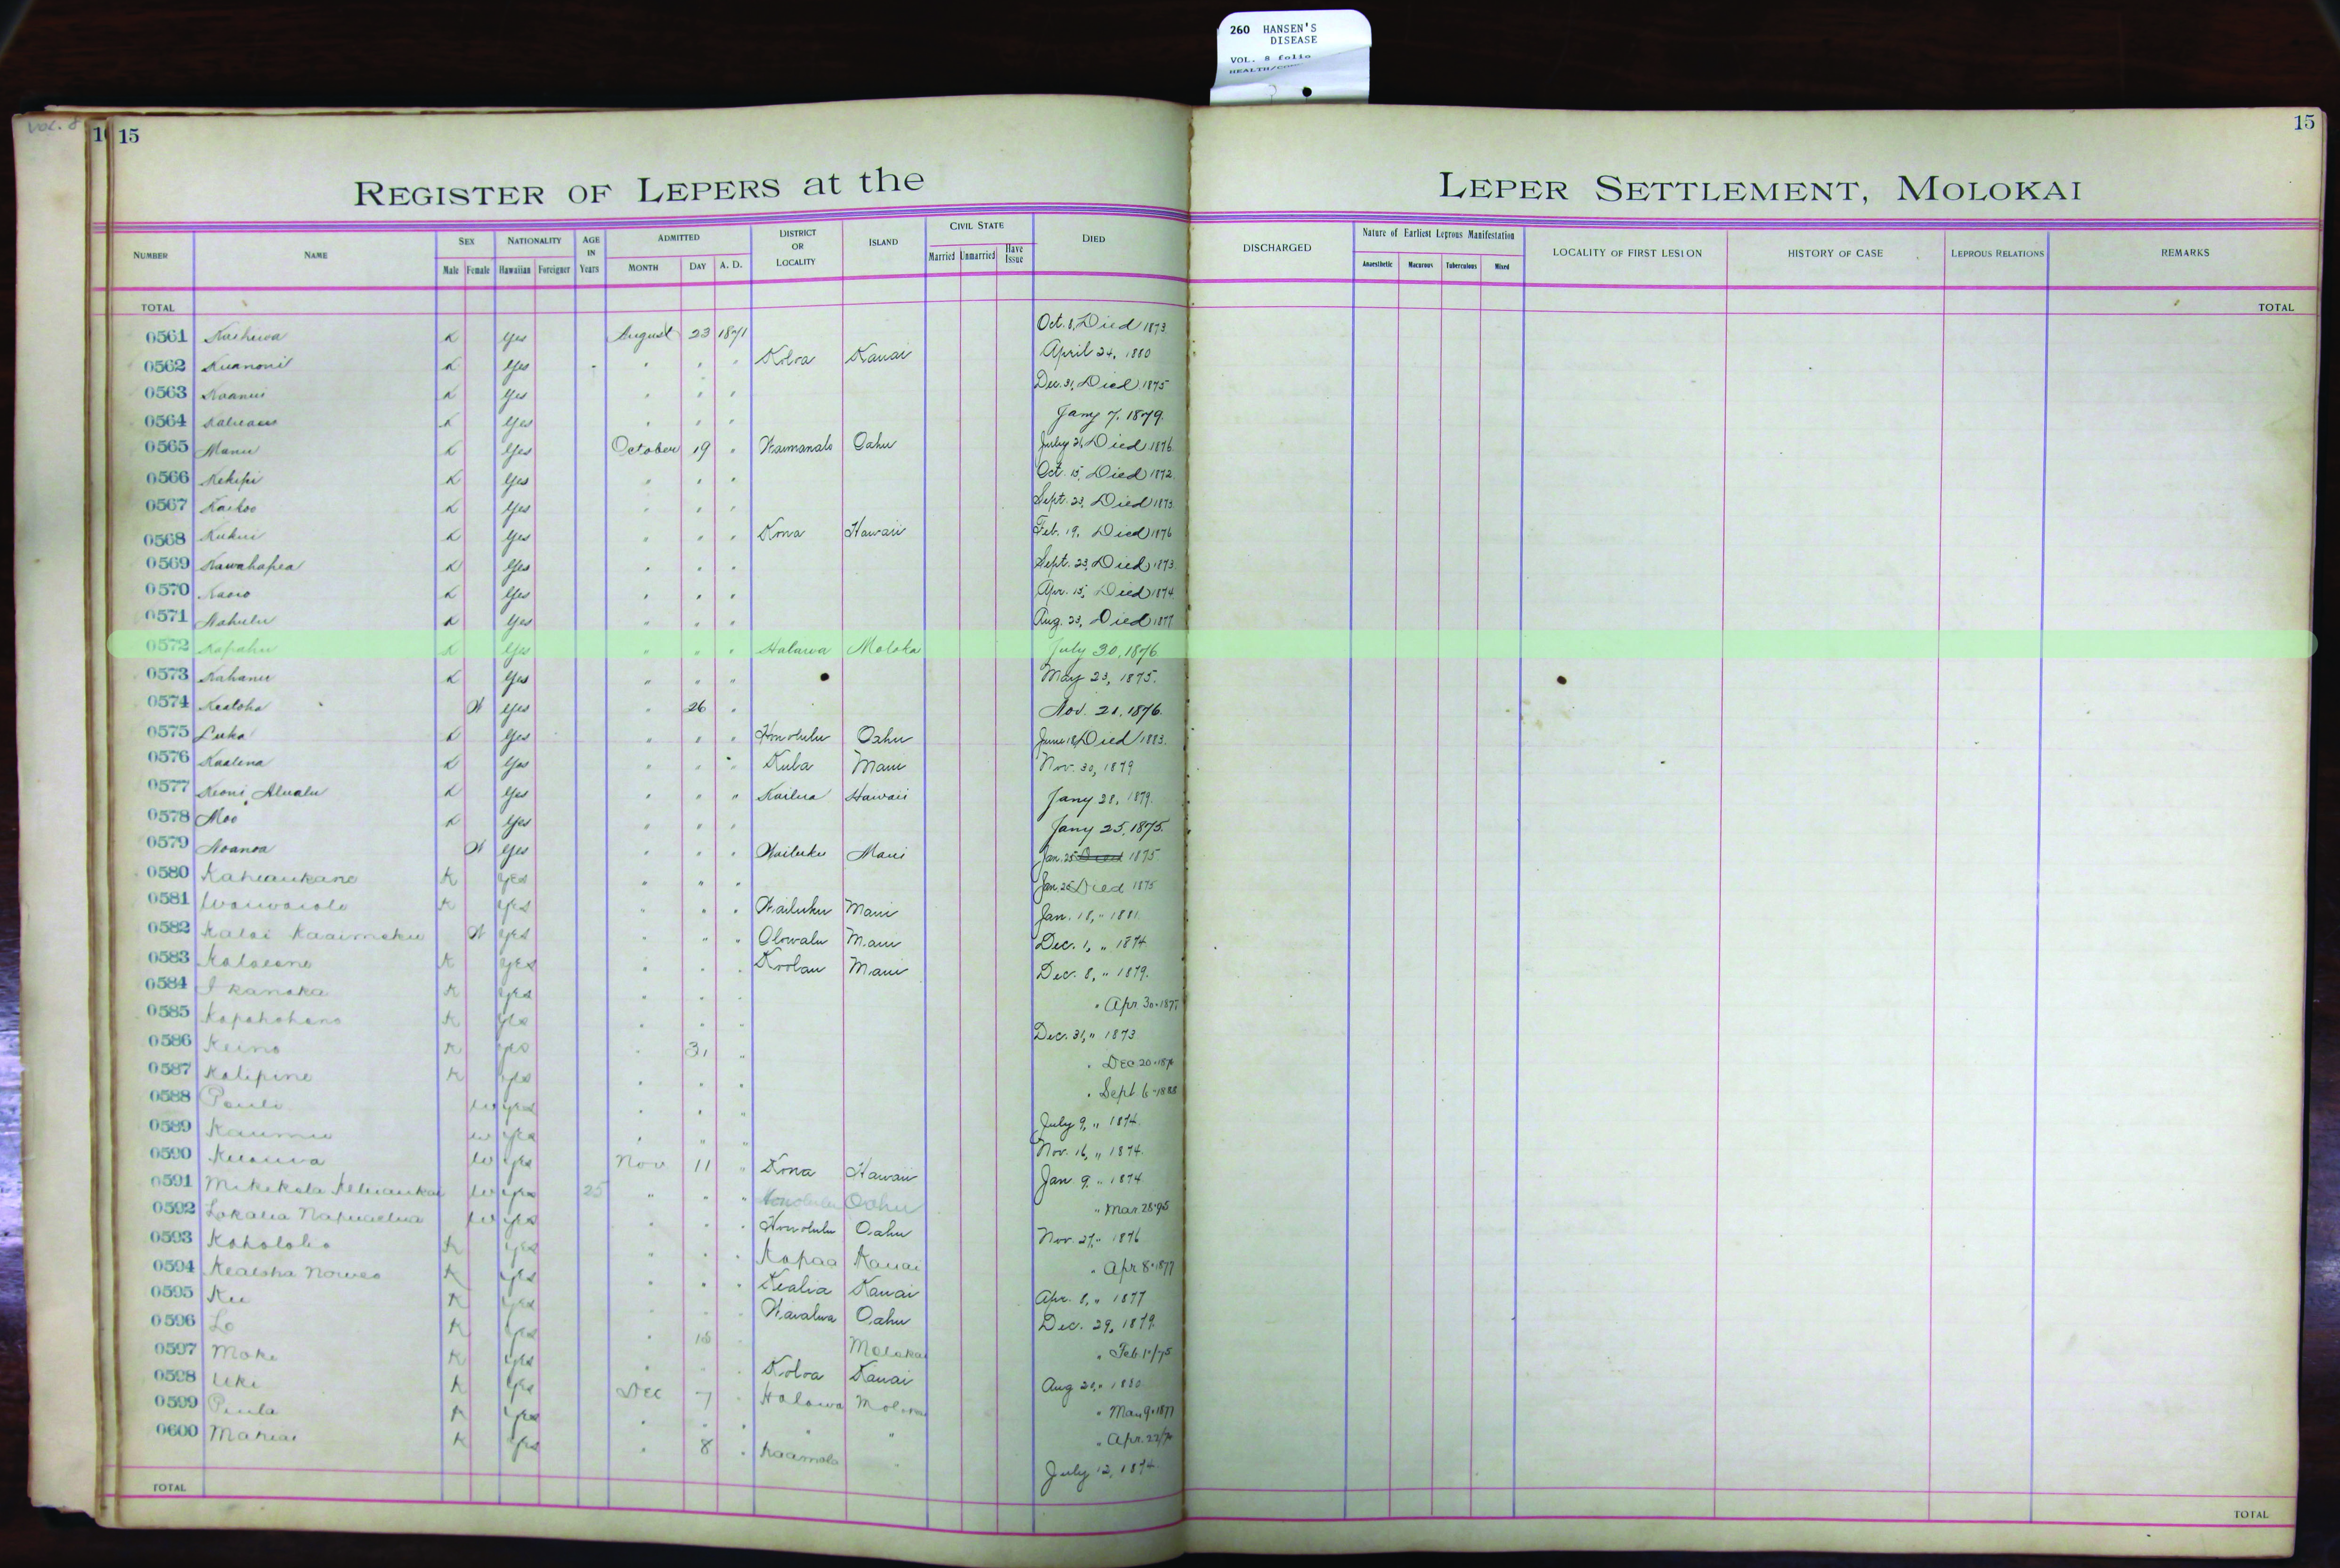 260 HANSEN'S
DISEASE
VOL. 8 folio
VOL. 8
15 15
REGISTER OF LEPERS at the LEPER SETTLEMENT, MOLOKAI
NUMBER NAME SEX NATIONALITY AGE IN Years ADMITTED DISTRICT OR LOCALITY ISLAND CIVIL STATE DIED DISCHARGED Nature of Earliest Leprous Manifestation LOCALITY OF FIRST LESION HISTORY OF CASE LEPROUS RELATIONS REMARKS
Male Female Hawaiian Foreigner MONTH DAY A. D. Married Unmarried Have Issue Anaesthetic Macurous Tuberculous Mixed
TOTAL TOTAL
0561 K Yes August 23 1871 Oct. 8, Died 1873
0562 Kuanonii K Yes " " " Koloa Kauai April 24, 1880
0563 Koanui K Yes " " " Dec. 31, Died 1875
0564 K Yes " " " Jany 7, 1879.
0565 Manu K Yes October 19 " Waimanalo Oahu July 26 Died 1876
0566 Kekipi K Yes " " " Oct. 15, Died 1872
0567 Kaikoo K Yes " " " Sept. 23, Died 1873
0568 Kukui K Yes " " " Kona Hawaii Feb. 19, Died 1876
0569 Kawahapea K Yes " " " Sept. 23, Died 1873
0570 Kaoio K Yes " " " Apr. 15, Died 1874
0571 Nahulu K Yes " " " Aug. 23, Died 1877
0572 Kapahu K Yes " " " Halawa Moloka July 30, 1876
0573 Kahanu K Yes " " " May 23, 1875.
0574 Kealoha W Yes " 26 " Nov. 21, 1876.
0575 Luka K Yes " " " Honolulu Oahu June 18 Died 1883.
0576 Kaalena K Yes " " " Kula Maui Nov. 30, 1879
0577 Keoni Alualu K Yes " " " Kailua Hawaii Jany 28, 1879.
0578 Moo K Yes " " " Jany 25, 1875.
0579 Noanoa W Yes " " " Wailuku Maui Jan. 25 Died 1875
0580 Kaheaukane K Yes " " " Jan. 25 Died 1875
0581 Waiwaiole K Yes " " " Wailuku Maui Jan. 18, " 1881
0582 Kalai Kaaimoku W Yes " " " Olowalu Maui Dec. 1, " 1874
0583 K Yes " " " Koolau Maui Dec. 8, " 1879.
0584 I kanaka K Yes " " " " Apr 30-187
0585 Kapahohano K Yes " " " Dec. 31, " 1873
0586 Keino K Yes " 31 " " Dec 20-187
0587 Kalipine K Yes " " " " Sept 6-1888
0588 Pauli W Yes " " " July 9, " 1874.
0589 Kaumu W Yes " " " Nov. 16, " 1874.
0590 W Yes Nov 11 " Kona Hawaii Jan. 9, " 1874
0591 Mikikola W Yes 25 " " " Honolulu Oahu " Mar. 28-95
0592 Lokalia Napuaelua W Yes " " " Honolulu Oahu Nov. 27, " 1876
0593 Kaholoke K Yes " " " Kapaa Kauai " Apr 8-1877
0594 Kealoha K Yes " " " Kealia Kauai Apr. 8, " 1877
0595 Ku K Yes " " " Waialua Oahu Dec. 29, 1879
0596 Lo K Yes " 18 " Molokai " Feb. 1"/75
0597 Moke K Yes " " " Koloa Kauai Aug 20, " 1880
0598 Uki K Yes Dec 7 " Halawa " Mar 9-1877
0599 Piula K Yes " " " " " " Apr. 22/
0600 Mahiai K Yes " 8 " Kaamola " July 12, 1874
TOTAL TOTAL